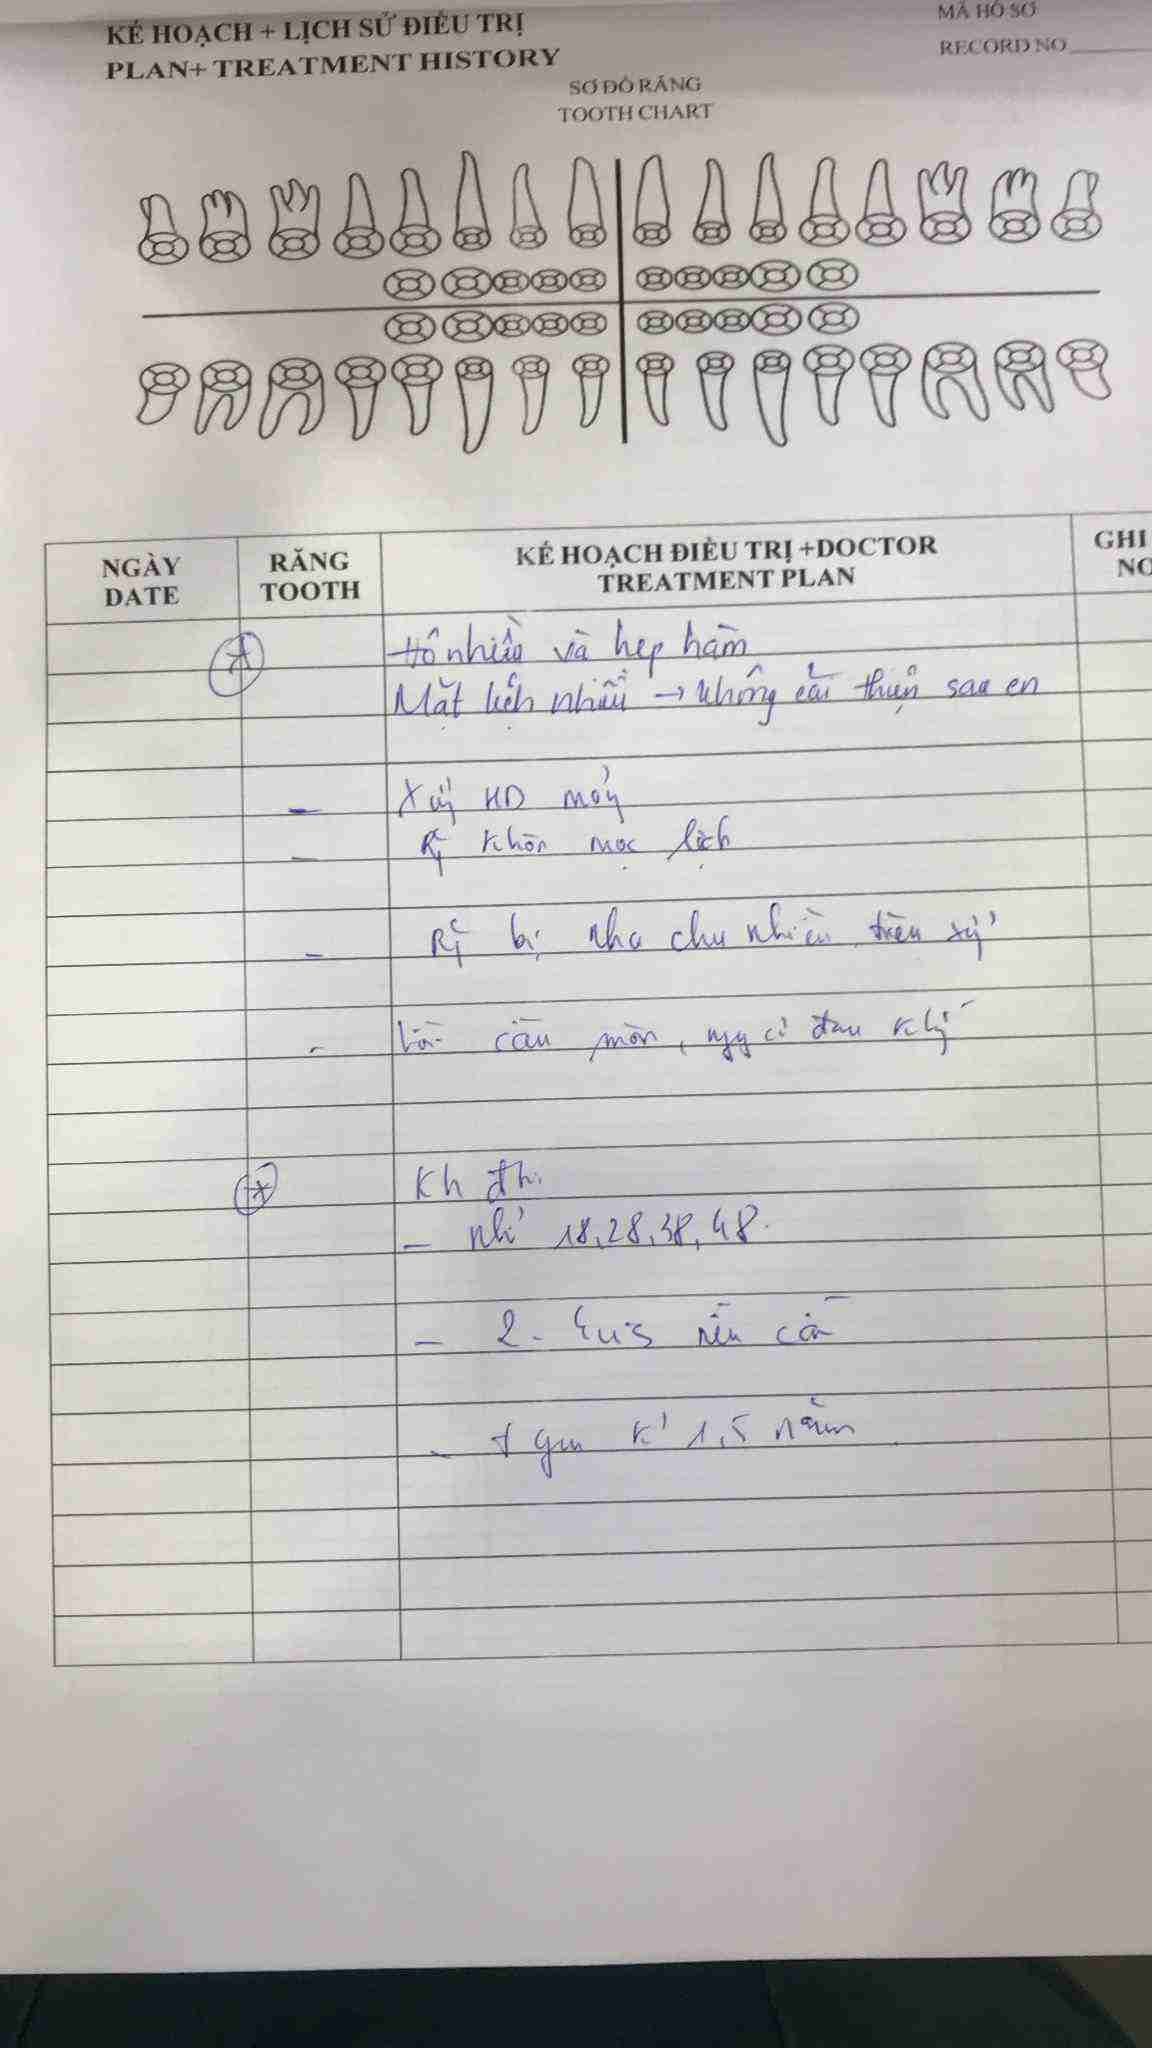 KẾ HOẠCH + LỊCH SỬ ĐIỀU TRỊ
PLAN+ TREATMENT HISTORY
MÃ HỒ SƠ
RECORD NO
SƠ ĐỒ RĂNG
TOOTH CHART
NGÀY
DATE
RĂNG
TOOTH
KẾ HOẠCH ĐIỀU TRỊ +DOCTOR
TREATMENT PLAN
GHI
NO
Hô nhiều và hẹp hàm
Mặt lệch nhiều → không cải thiện sau
- X HD mỏng
- R khôn mọc lệch
- R bị nha chu nhiều
- cầu mòn, nguy cơ đau
Kh đh.
- nhổ 18,28,38,48.
- 2
- 1,5 năm